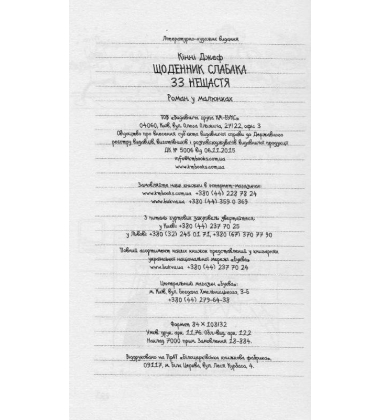 Літературно-художнє видання
Кінні Джефф
ЩОДЕННИК СЛАБАКА
33 НЕЩАСТЯ
Роман у малюнках
ТОВ «Видавнича група КМ-БУКС»
04060, Київ, вул. Олега Ольжича, 27/22, офіс 3
Свідоцтво про внесення суб'єкта видавничої справи до Державного
реєстру видавців, виготівників і розповсюджувачів видавничої продукції
ДК № 5006 від 06.11.2015
info@kmbooks.com.ua
www.kmbooks.com.ua
Замовляйте наші книжки в інтернет-магазинах:
www.kmbooks.com.ua +380 (44) 228 78 24
www.bukva.ua +380 (44) 359 0 369
З питань гуртових закупівель звертайтеся:
у Києві: +380 (44) 237 70 25
у Львові: +380 (32) 245 01 71, +380 (67) 370 77 90
Повний асортимент наших книжок представлений у книгарнях
української національної мережі «Буква»:
www.bukva.ua +380 (44) 237 70 24
Центральний магазин «Буква»:
м. Київ, вул. Богдана Хмельницького, 3-б
+380 (44) 279-64-38
Формат 84 × 108/32
Умов. друк. арк. 11,76. Обл.-вид. арк. 12,2.
Наклад 7000 прим. Замовлення 18-884.
Віддруковано на ПрАТ «Білоцерківська книжкова фабрика»
09117, м. Біла Церква, вул. Леся Курбаса, 4.